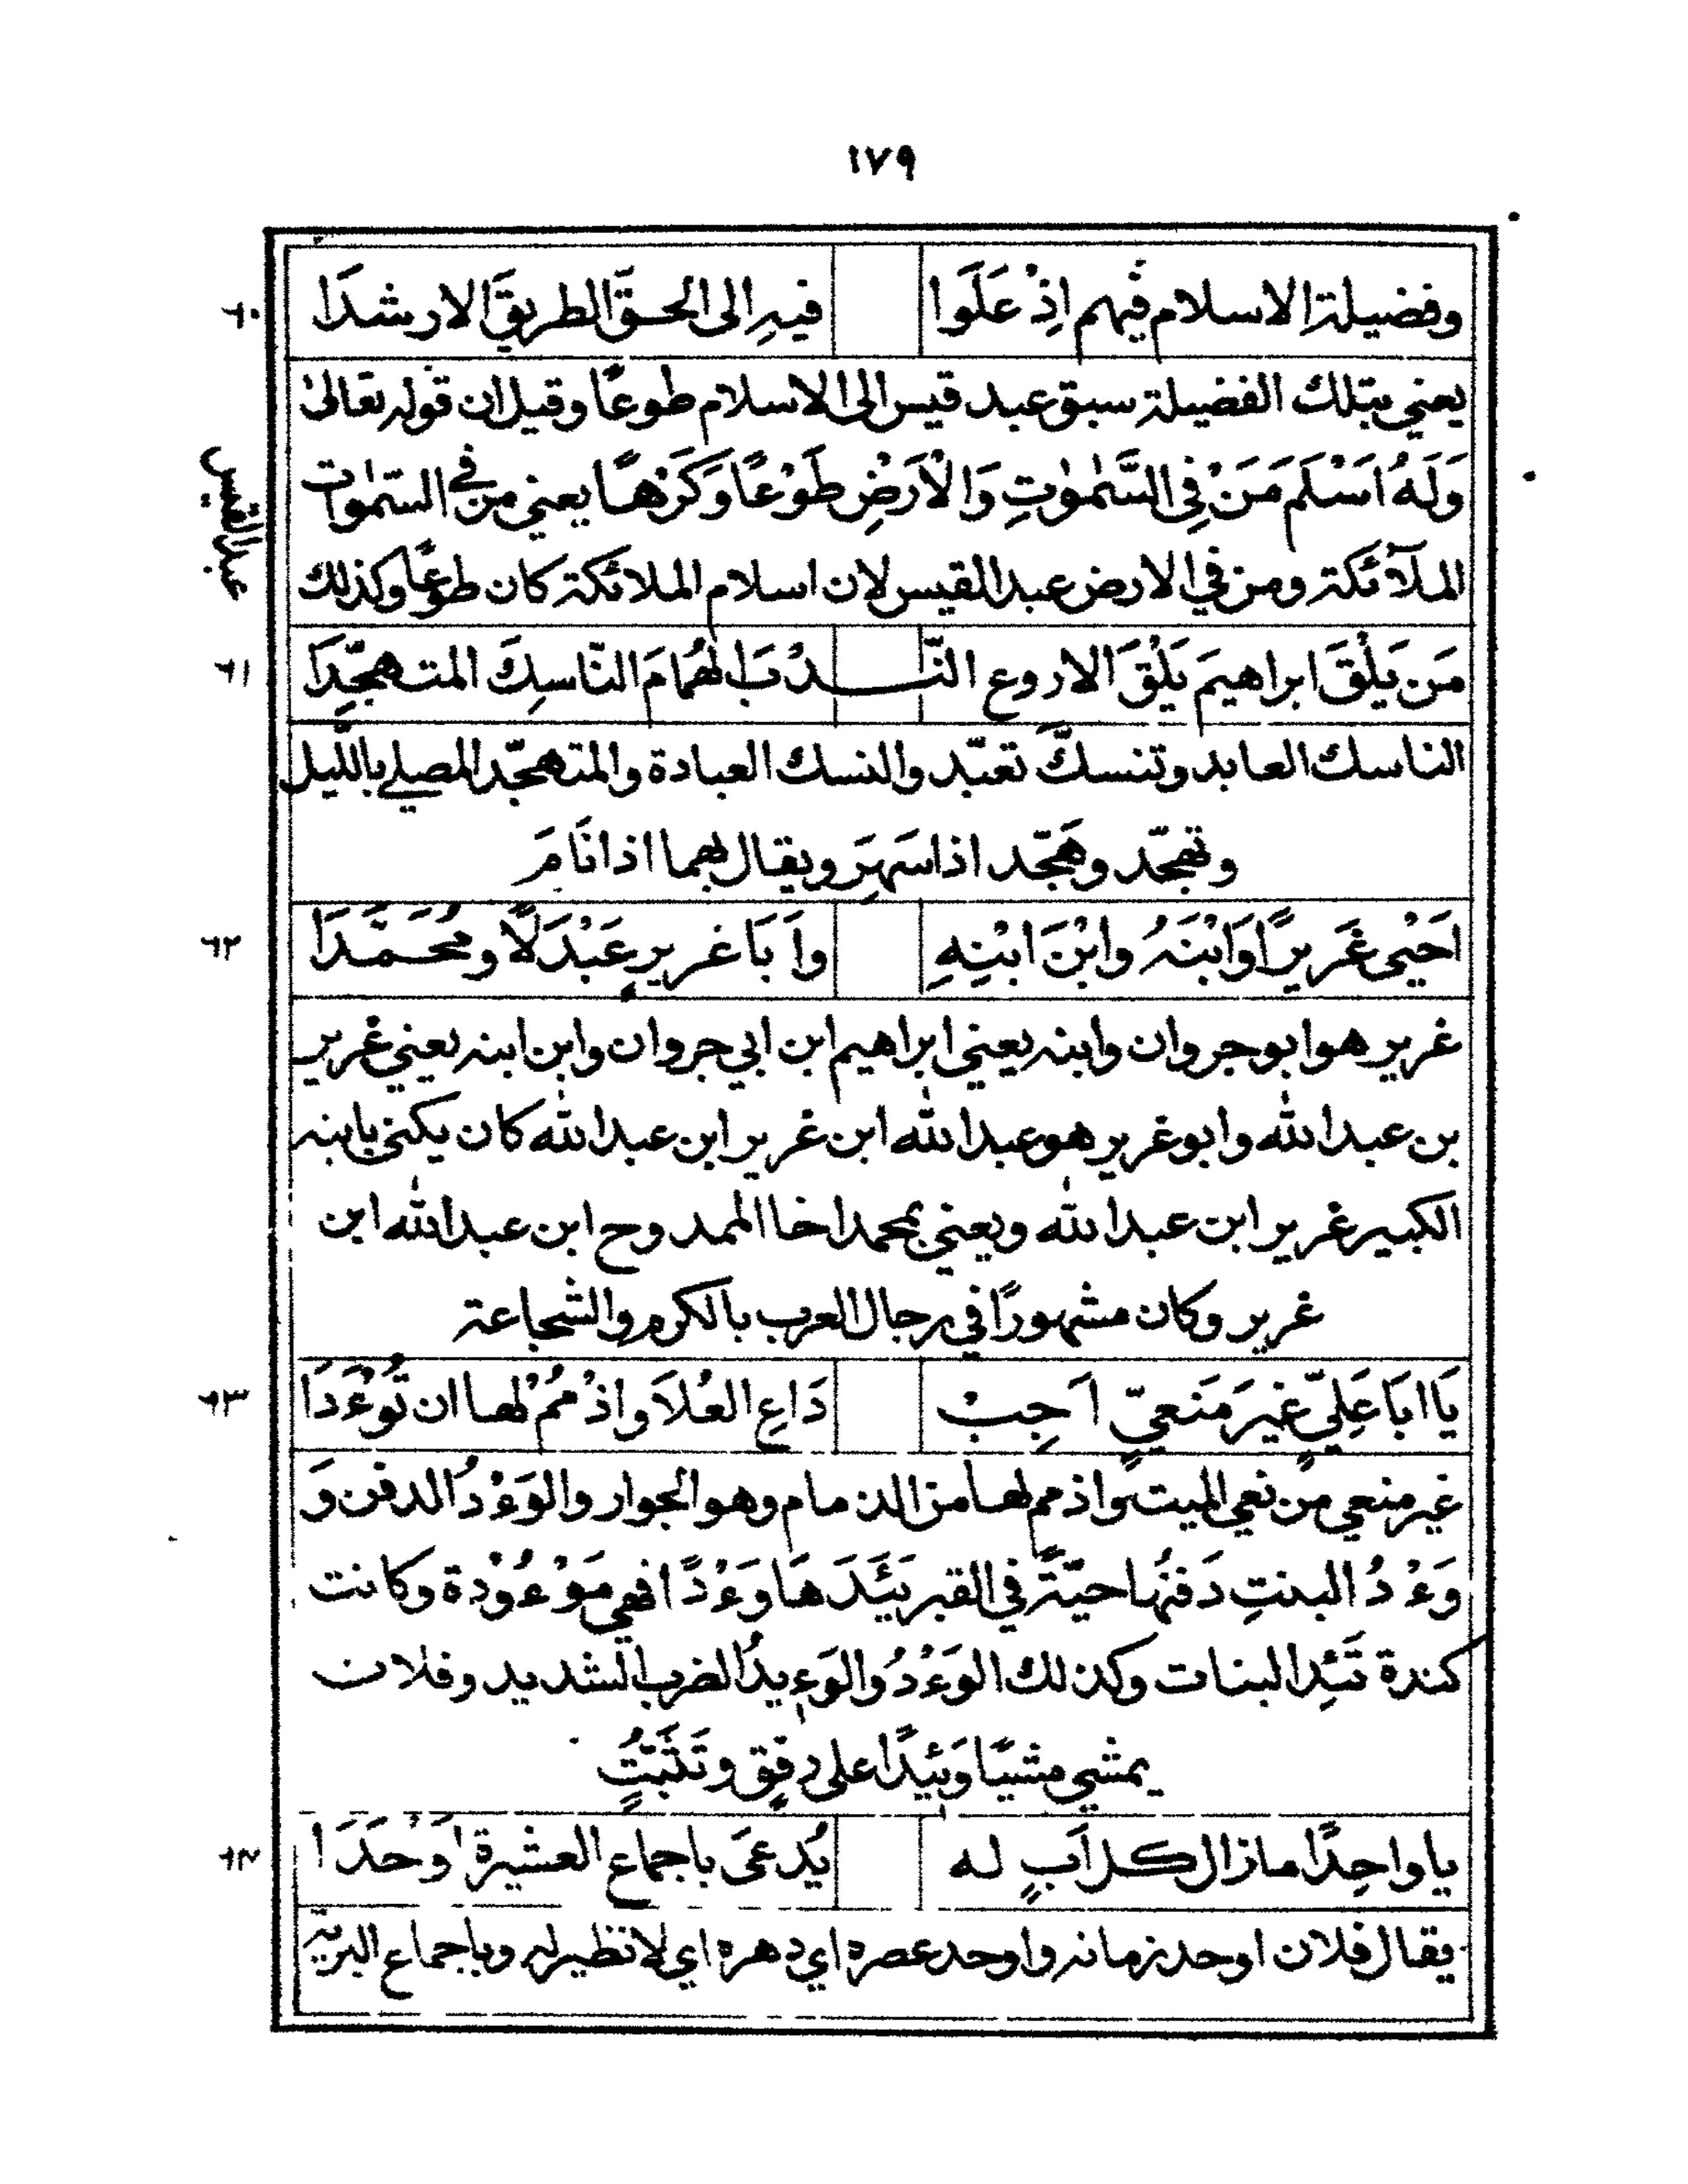 ١٧٩
وفضيلة الاسلام فيهم اِذْ عَلَوا فيهِ الى الحقَّ الطريقَ الارشدَا ٦٠
يعني بتلك الفضيلة سبق عبد قيس الى الاسلام طوعًا وقيل ان قوله تعالىٰ
وَلَهُ اَسْلَمَ مَنْ فِي السَّمٰوٰتِ وَالْاَرَضِ طَوْعًا وَكَرْهًا يعني من في السّمٰوات
عبد القيس
الملآئكة ومن في الارض عبد القيس لان اسلام الملائكة كان طوعًا وكذلك
مَن يَلْقَ ابراهيمَ يَلْقَ الاروع النّـــدْبَ الهُمامَ النّاسِكَ المتهجّدَا ٦١
الناسك العابد وتنسكَّ تعبّد والنسك العبادة والمتهجّد المصلي بالليل
وتهجّد وهَجّد اذا سَهِرَ ويقال لهما اذا نَامَ
اَحْيٰى غَريرًا وَابْنَهُ وابْنَ ابْنِهِ واَبَا غريرٍ عَبْدَلًا ومُحَمَّدَا ٦٢
غرير هو ابو جروان وابنه يعني ابراهيم ابن ابي جروان وابن ابنه يعني غرير
بن عبد الله وابو غرير هو عبد الله ابن غرير ابن عبد الله كان يكنى بابنه
الكبير غرير ابن عبد الله ويعني بمحمد اخا الممدوح ابن عبد الله ابن
غرير وكان مشهورًا في رجال العرب بالكرم والشجاعة
يَا ابَا عَلِيٍّ غيرَ مَنعيٍّ اَجِبْ دَاعِ العُلاَ واذْمُمْ لها ان تُوْءَدَا ٦٣
غير منعي من نعي الميت واذمم لها من الذمام وهو الجوار والوَءْدُ الدفن وَ
وَءْدُ البنتِ دَفنُها حيّةً في القبر يَئَدَهَا وَءْدًا فهي مَوْءُوْدة وكانت
كندة تَئِد البنات وكذلك الوَءْدُ والوَءِيدُ الضرب الشديد وفلان
يمشي مشيًا وَئِيدًا على رفقٍ وتَثَبّتٍ
يا واحِدًا ما زال كل اَبٍ له يُدعىَ باجماع العشيرة اَوْحَدَا ٦٤
يقال فلان اوحد زمانه واوحد عصره اي دهره اي لا نظير له وباجماع البريّة